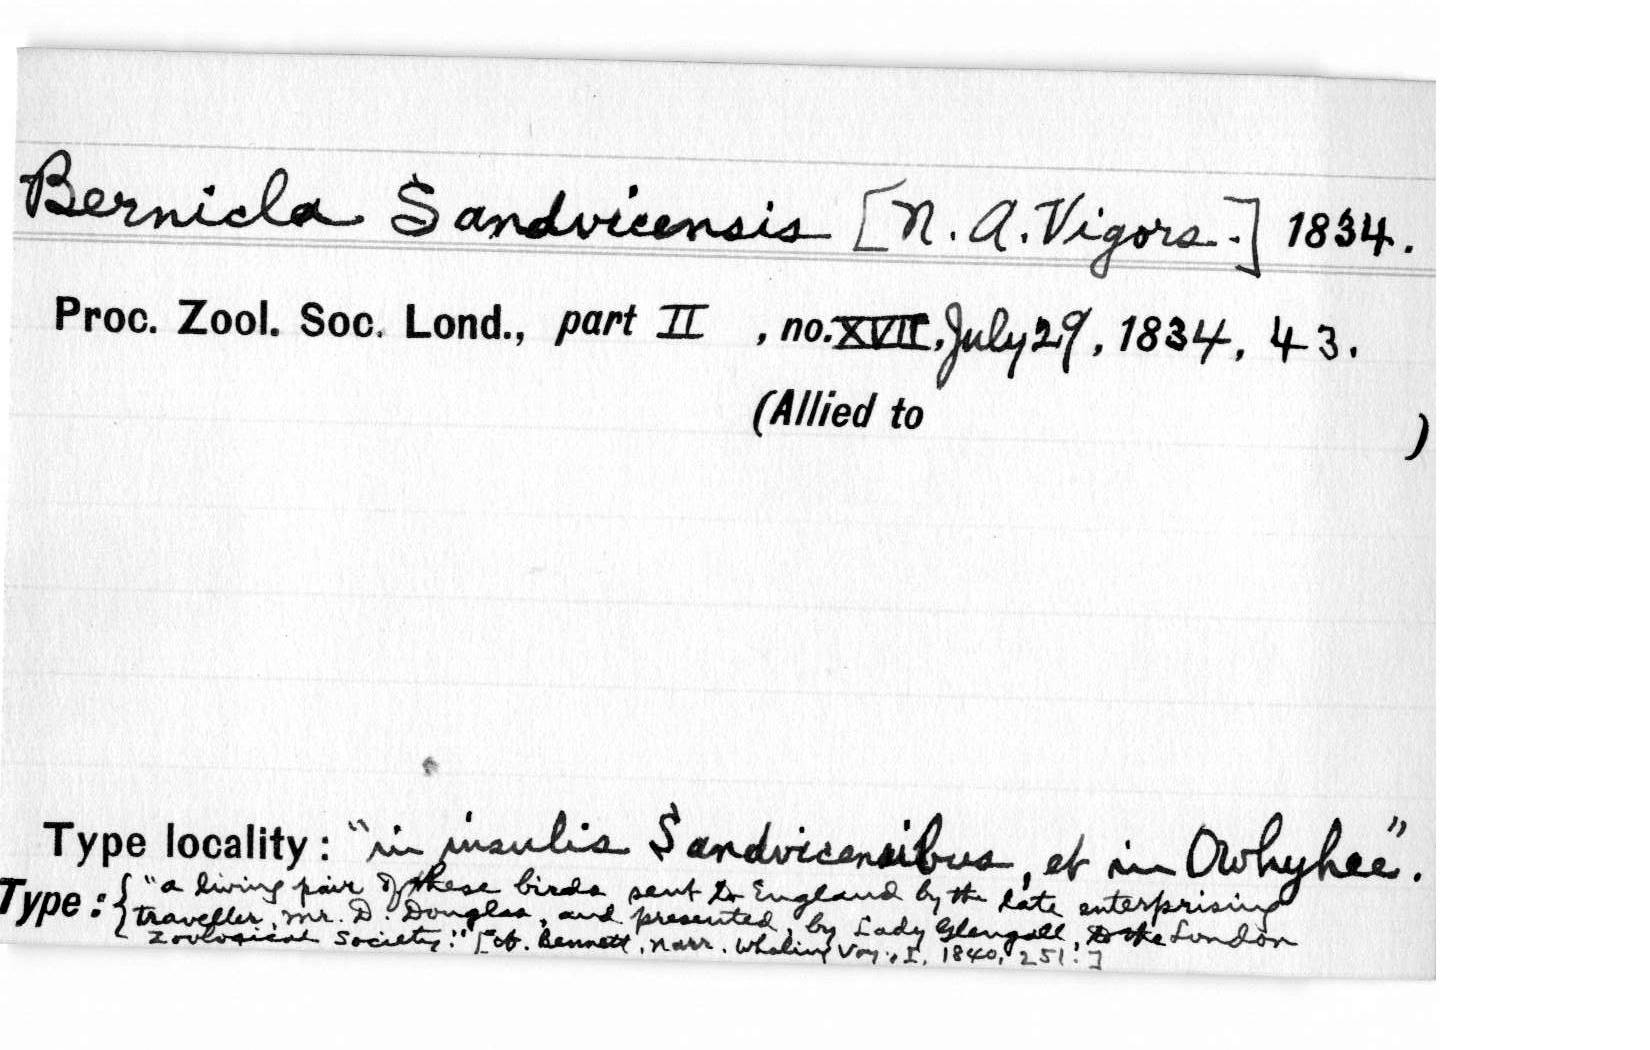 Bernicla Sandvicensis [N. A. Vigors.] 1834.
Proc. Zool. Soc. Lond., part II , no. XVII, July 29, 1834, 43.
(Allied to )
Type locality: "in insulis Sandvicensibus, et in Owhyhee".
Type: { "a living pair of these birds sent to England by the late enterprising
traveller, Mr. D. Douglas, and presented, by Lady Glengall, to the London
Zoological Society." [cf. Bennett, Narr. Whaling Voy., I, 1840, 251.]